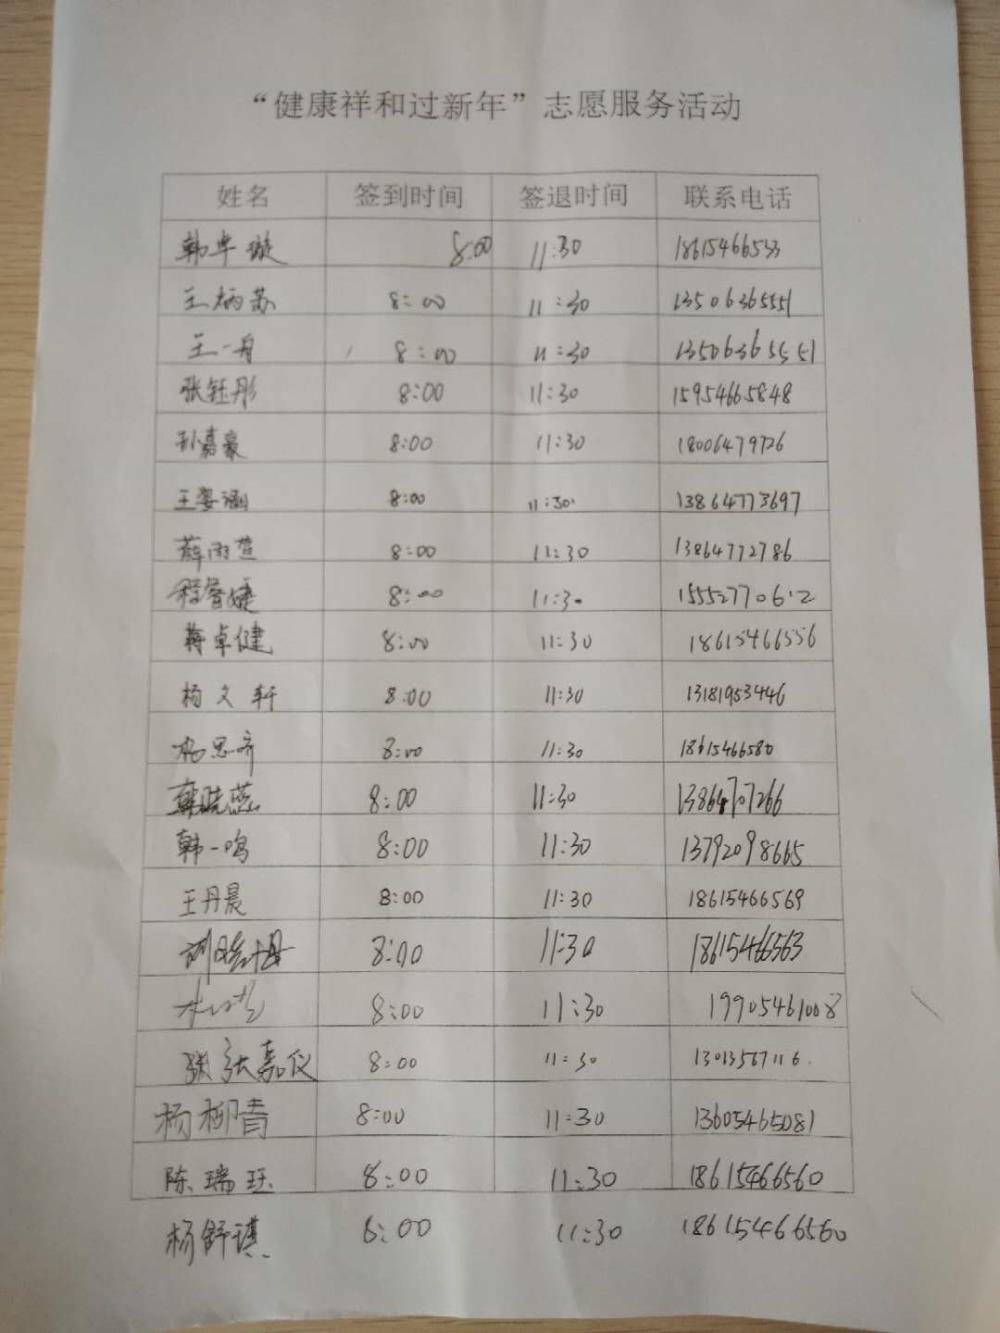 “健康祥和过新年”志愿服务活动
姓名 签到时间 签退时间 联系电话
韩卓璇 8:00 11:30
王炳苏 8:00 11:30 13506365551
王一舟 8:00 11:30 13506365551
张钰彤 8:00 11:30 15954665848
孙嘉豪 8:00 11:30 18006479726
王姿涵 8:00 11:30 13864773697
薛雨萱 8:00 11:30 13864772786
8:00 11:30 15552770612
蒋卓健 8:00 11:30 18615466556
杨文轩 8:00 11:30 13181953446
杨思齐 8:00 11:30 18615466580
韩晓蕊 8:00 11:30 13864707266
韩一鸣 8:00 11:30 13792098665
王丹晨 8:00 11:30 18615466569
8:00 11:30 18615466563
8:00 11:30 19905461008
张嘉仪 8:00 11:30 13013567116
杨柳青 8:00 11:30 13605465081
陈瑞珏 8:00 11:30 18615466560
杨舒琪 8:00 11:30 18615466560